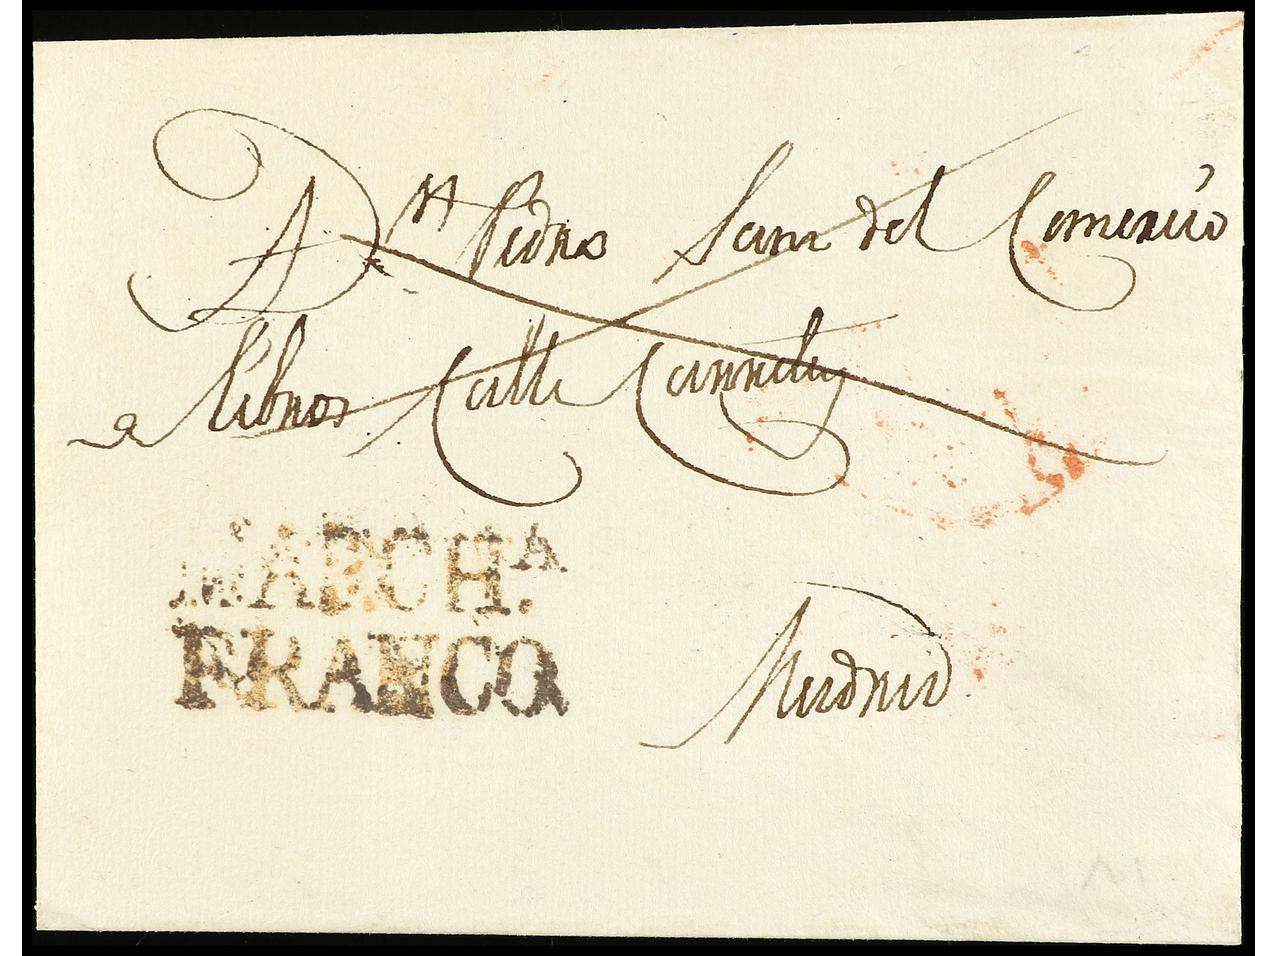 A Dn Pedro Sanz del Comercio
de libros Calle Carretas
MARCH.A
FRANCO
Madrid